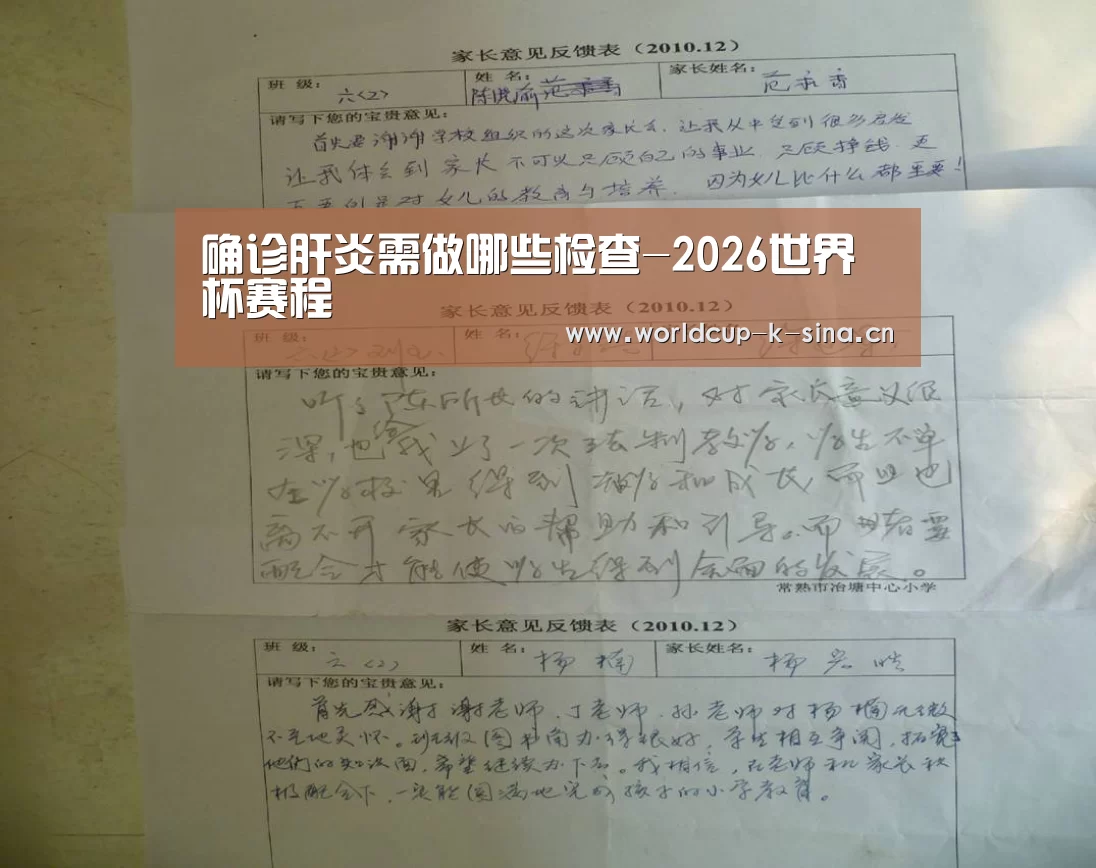 家长意见反馈表（2010.12）
班 级： 六〈2〉 姓 名： 陈晓渝 家长姓名： 范
请写下您的宝贵意见：
首先要谢谢学校组织的这次家长会，让我从中受到很多启发
让我体会到家长不可以只顾自己的事业，只顾挣钱，更
重要的是对女儿的教育与培养，因为女儿比什么都重要！
确诊肝炎需做哪些检查-2026世界
杯赛程
www.worldcup-k-sina.cn
家长意见反馈表（2010.12）
班 级： 姓 名：
请写下您的宝贵意见：
听了陈所长的讲话，对家长意义很
深，也给我上了一次法制教育，学生不单
在学校里得到教学和成长，而且也
离不开家长的帮助和引导。而两者要
配合才能使学生得到全面的发展。
常熟市冶塘中心小学
家长意见反馈表（2010.12）
班 级： 六〈2〉 姓 名： 杨楠 家长姓名： 杨
请写下您的宝贵意见：
首先感谢谢老师、丁老师、孙老师对杨楠无微
不至地关怀。图书角办得很好，学生相互争阅，拓宽了
他们的知识面，希望继续办下去。我相信，在老师和家长积
极配合下，一定能圆满地完成孩子的小学教育。